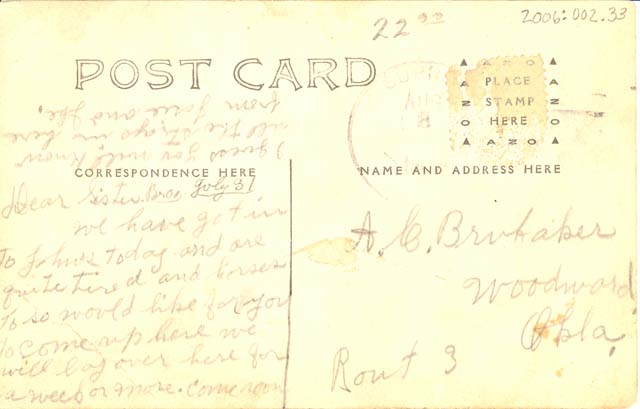 2006:002.33
22 00
POST CARD
AZO
PLACE
STAMP
HERE
AZO
AZO
AZO
I guess you will know
all the strays in here
from Josie and the,
CORRESPONDENCE HERE
NAME AND ADDRESS HERE
July 31
Dear Sister Bro,
we have got in
To Johns today and are
quite tired and horses
To so would like for you
to come up here we
will lay over here for
a week or more. come soon
A. C. Brubaker
Woodward
Okla,
Rout 3